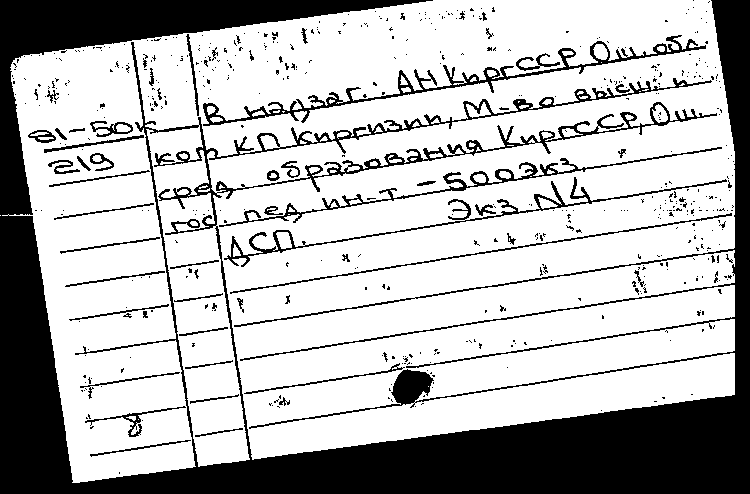 В надзаг.: АН КиргССР, Ош. обл
81-50к
219
ком КП Киргизии, М-во высш. и
сред. образования КиргССР, Ош.
гос. пед ин-т. - 500экз
ДСП. Экз N4
8